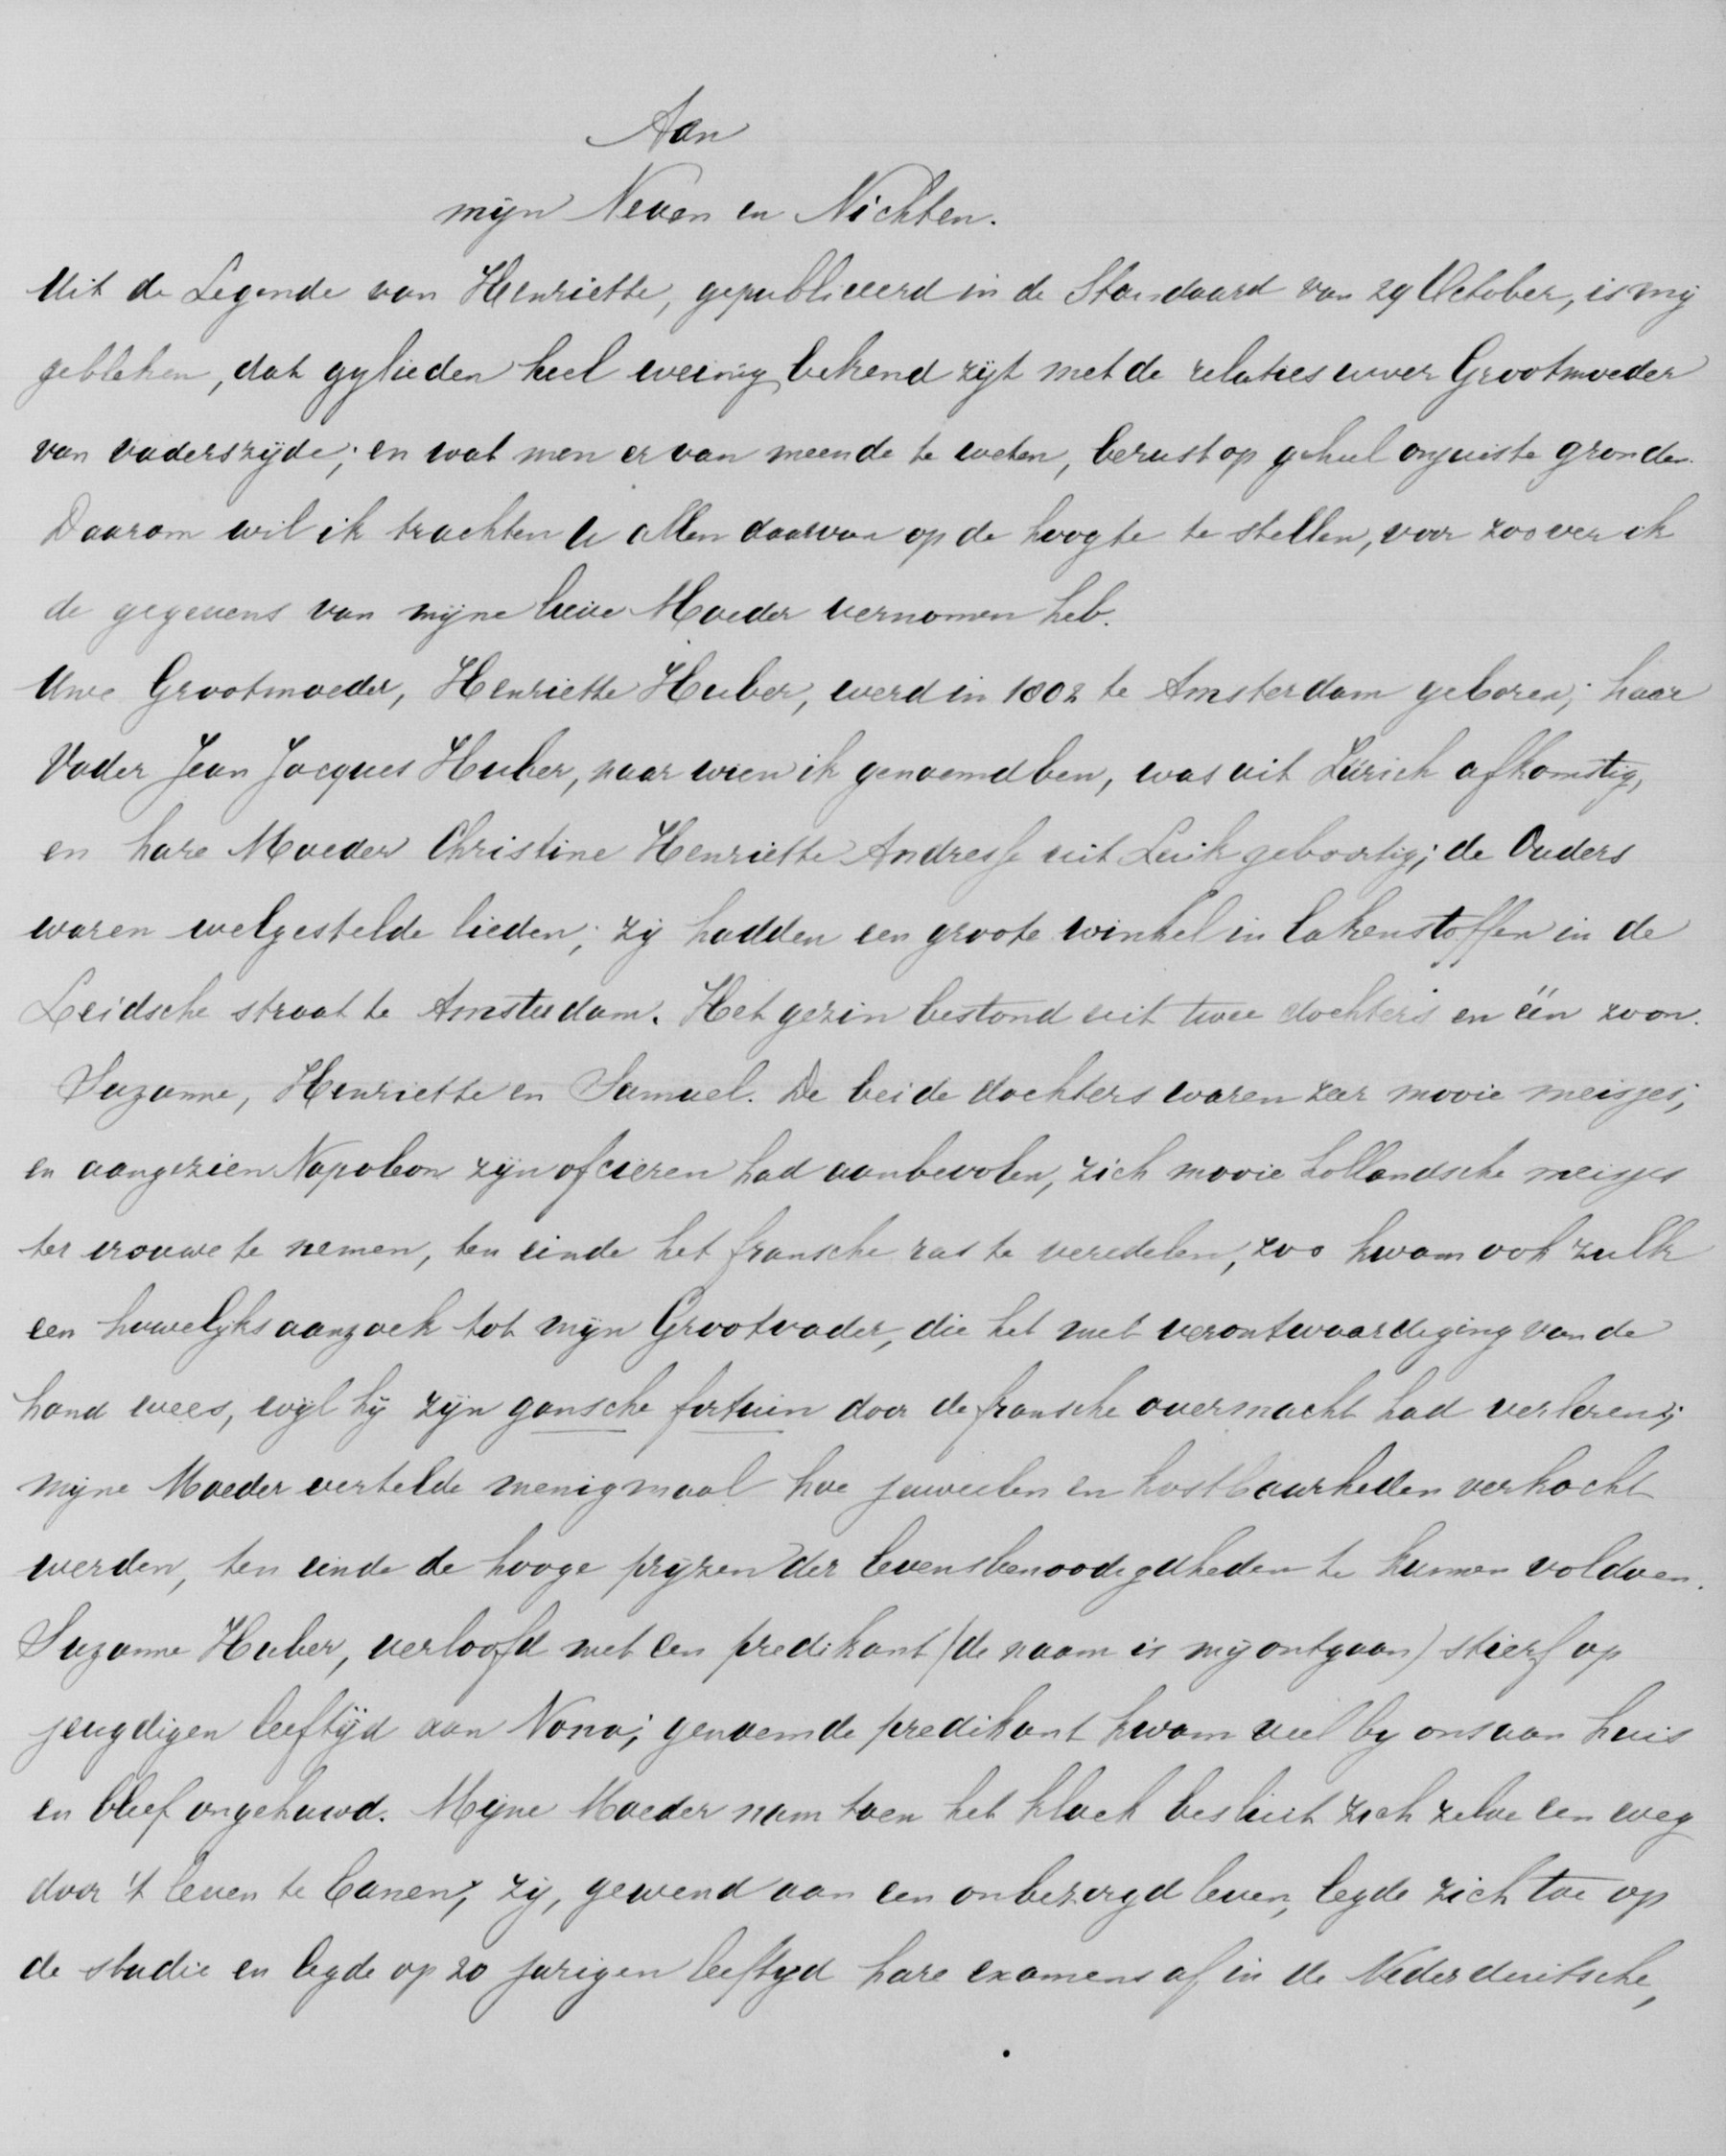 Aan
mijn Neven en Nichten.
Uit de Legende van Henriette, gepubliceerd in de Standaard van 29 October, is mij
gebleken, dat gylieden heel weinig bekend zijt met de relaties uwer Grootmoeder
van vaderszijde; en wat men er van meende te weten, berust op geheel onjuiste gronden.
Daarom wil ik trachten U allen daarvan op de hoogte te stellen, voor zoover ik
de gegevens van mijne lieve Moeder vernomen heb.
Uwe Grootmoeder, Henriette Huber, werd in 1802 te Amsterdam geboren; haar
Vader Jean Jacques Huber, naar wien ik genoemd ben, was uit Zürich afkomstig,
en hare Moeder Christine Henriette Andresse uit Luik geboortig; de Ouders
waren welgestelde lieden; zij hadden een groote winkel in lakenstoffen in de
Leidsche straat te Amsterdam. Het gezin bestond uit twee dochters en één zoon.
Suzanne, Henriette en Samuel. De beide dochters waren zeer mooie meisjes;
en aangezien Napoleon zijn officieren had aanbevolen, zich mooie hollandsche meisjes
ter vrouwe te nemen, ten einde het fransche ras te veredelen, zoo kwam ook zulk
een huwelijksaanzoek tot mijn Grootvader, die het met verontwaardiging van de
hand wees, wijl hij zijn gansche fortuin door de fransche overmacht had verloren;
mijne Moeder vertelde menigmaal hoe juweelen en kostbaarheden verkocht
werden, ten einde de hooge prijzen der levensbenoodigdheden te kunnen voldoen.
Suzanne Huber, verloofd met een predikant (de naam is mij ontgaan) stierf op
jeugdigen leeftijd aan Nona; genoemde predikant kwam veel by ons aan huis
en bleef ongehuwd. Mijne Moeder nam toen het kloek besluit zich zelve een weg
door 't leven te banen; zij, gewend aan een onbezorgd leven, legde zich toe op
de studie en legde op 20 jarigen leeftyd hare examens af in de Nederduitsche,